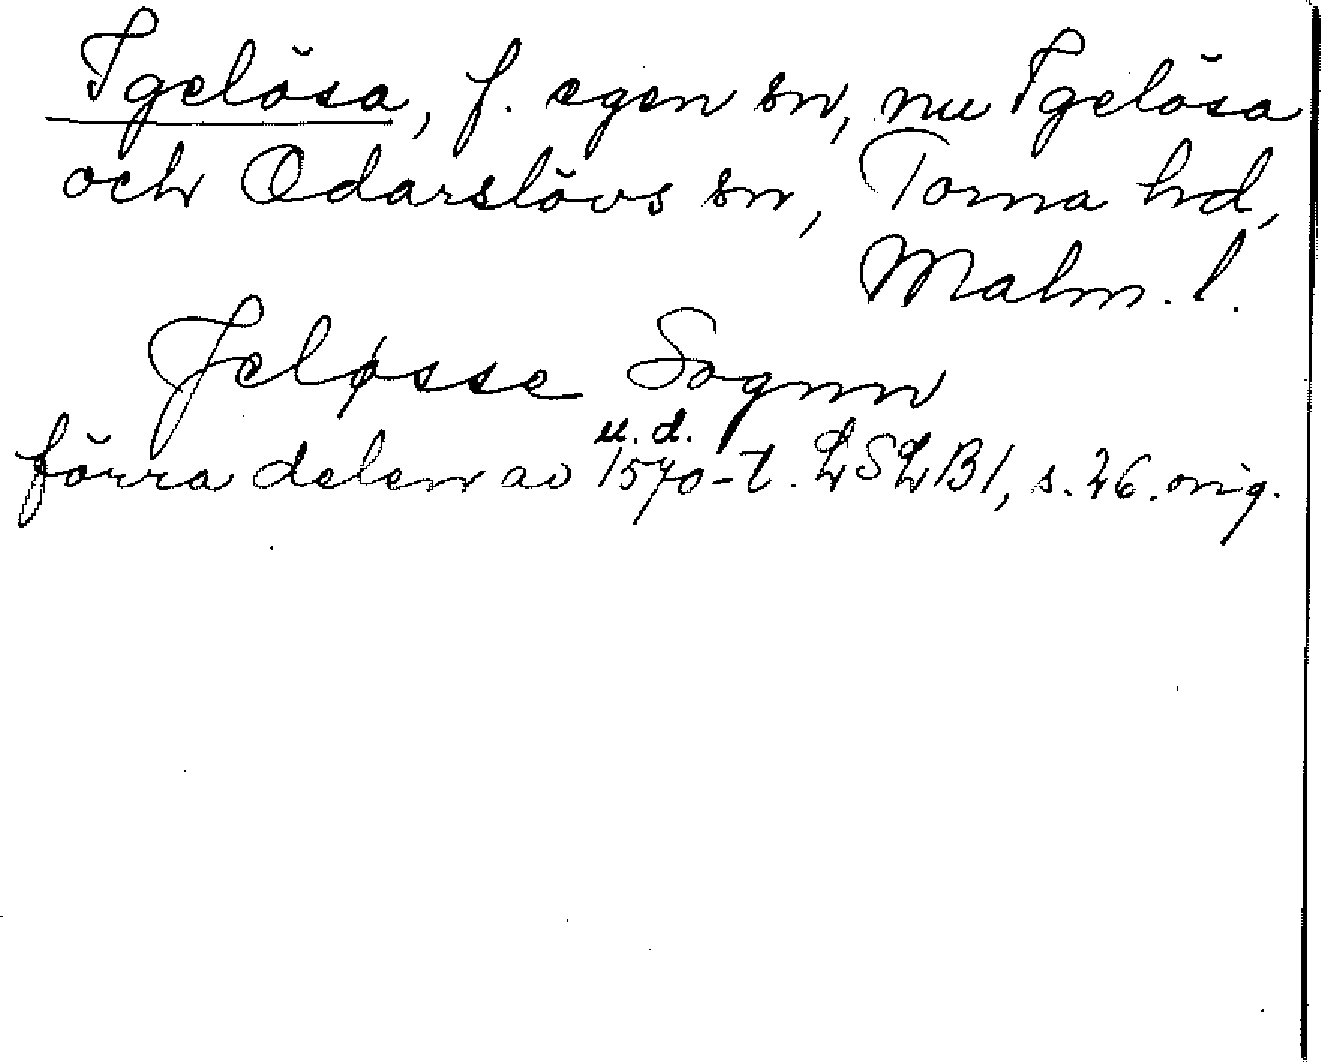 Igelösa, f. egen sn, nu Igelösa
och Odarslövs sn, Torna hd,
Malm. l.
Jeløsse Sognn
u. d.
förra delen av 1570-t. LSLB1, s. 26. orig.